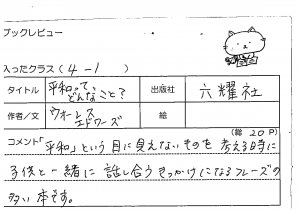 ブックレビュー
入ったクラス ( 4-1 )
タイトル 平和って、どんなこと? 出版社 六耀社
作者/文 ウォーレスエドワーズ 絵
(総 20P)
コメント「平和」という目に見えないものを考える時に
子供と一緒に話し合うきっかけになるフレーズの
多い本です。